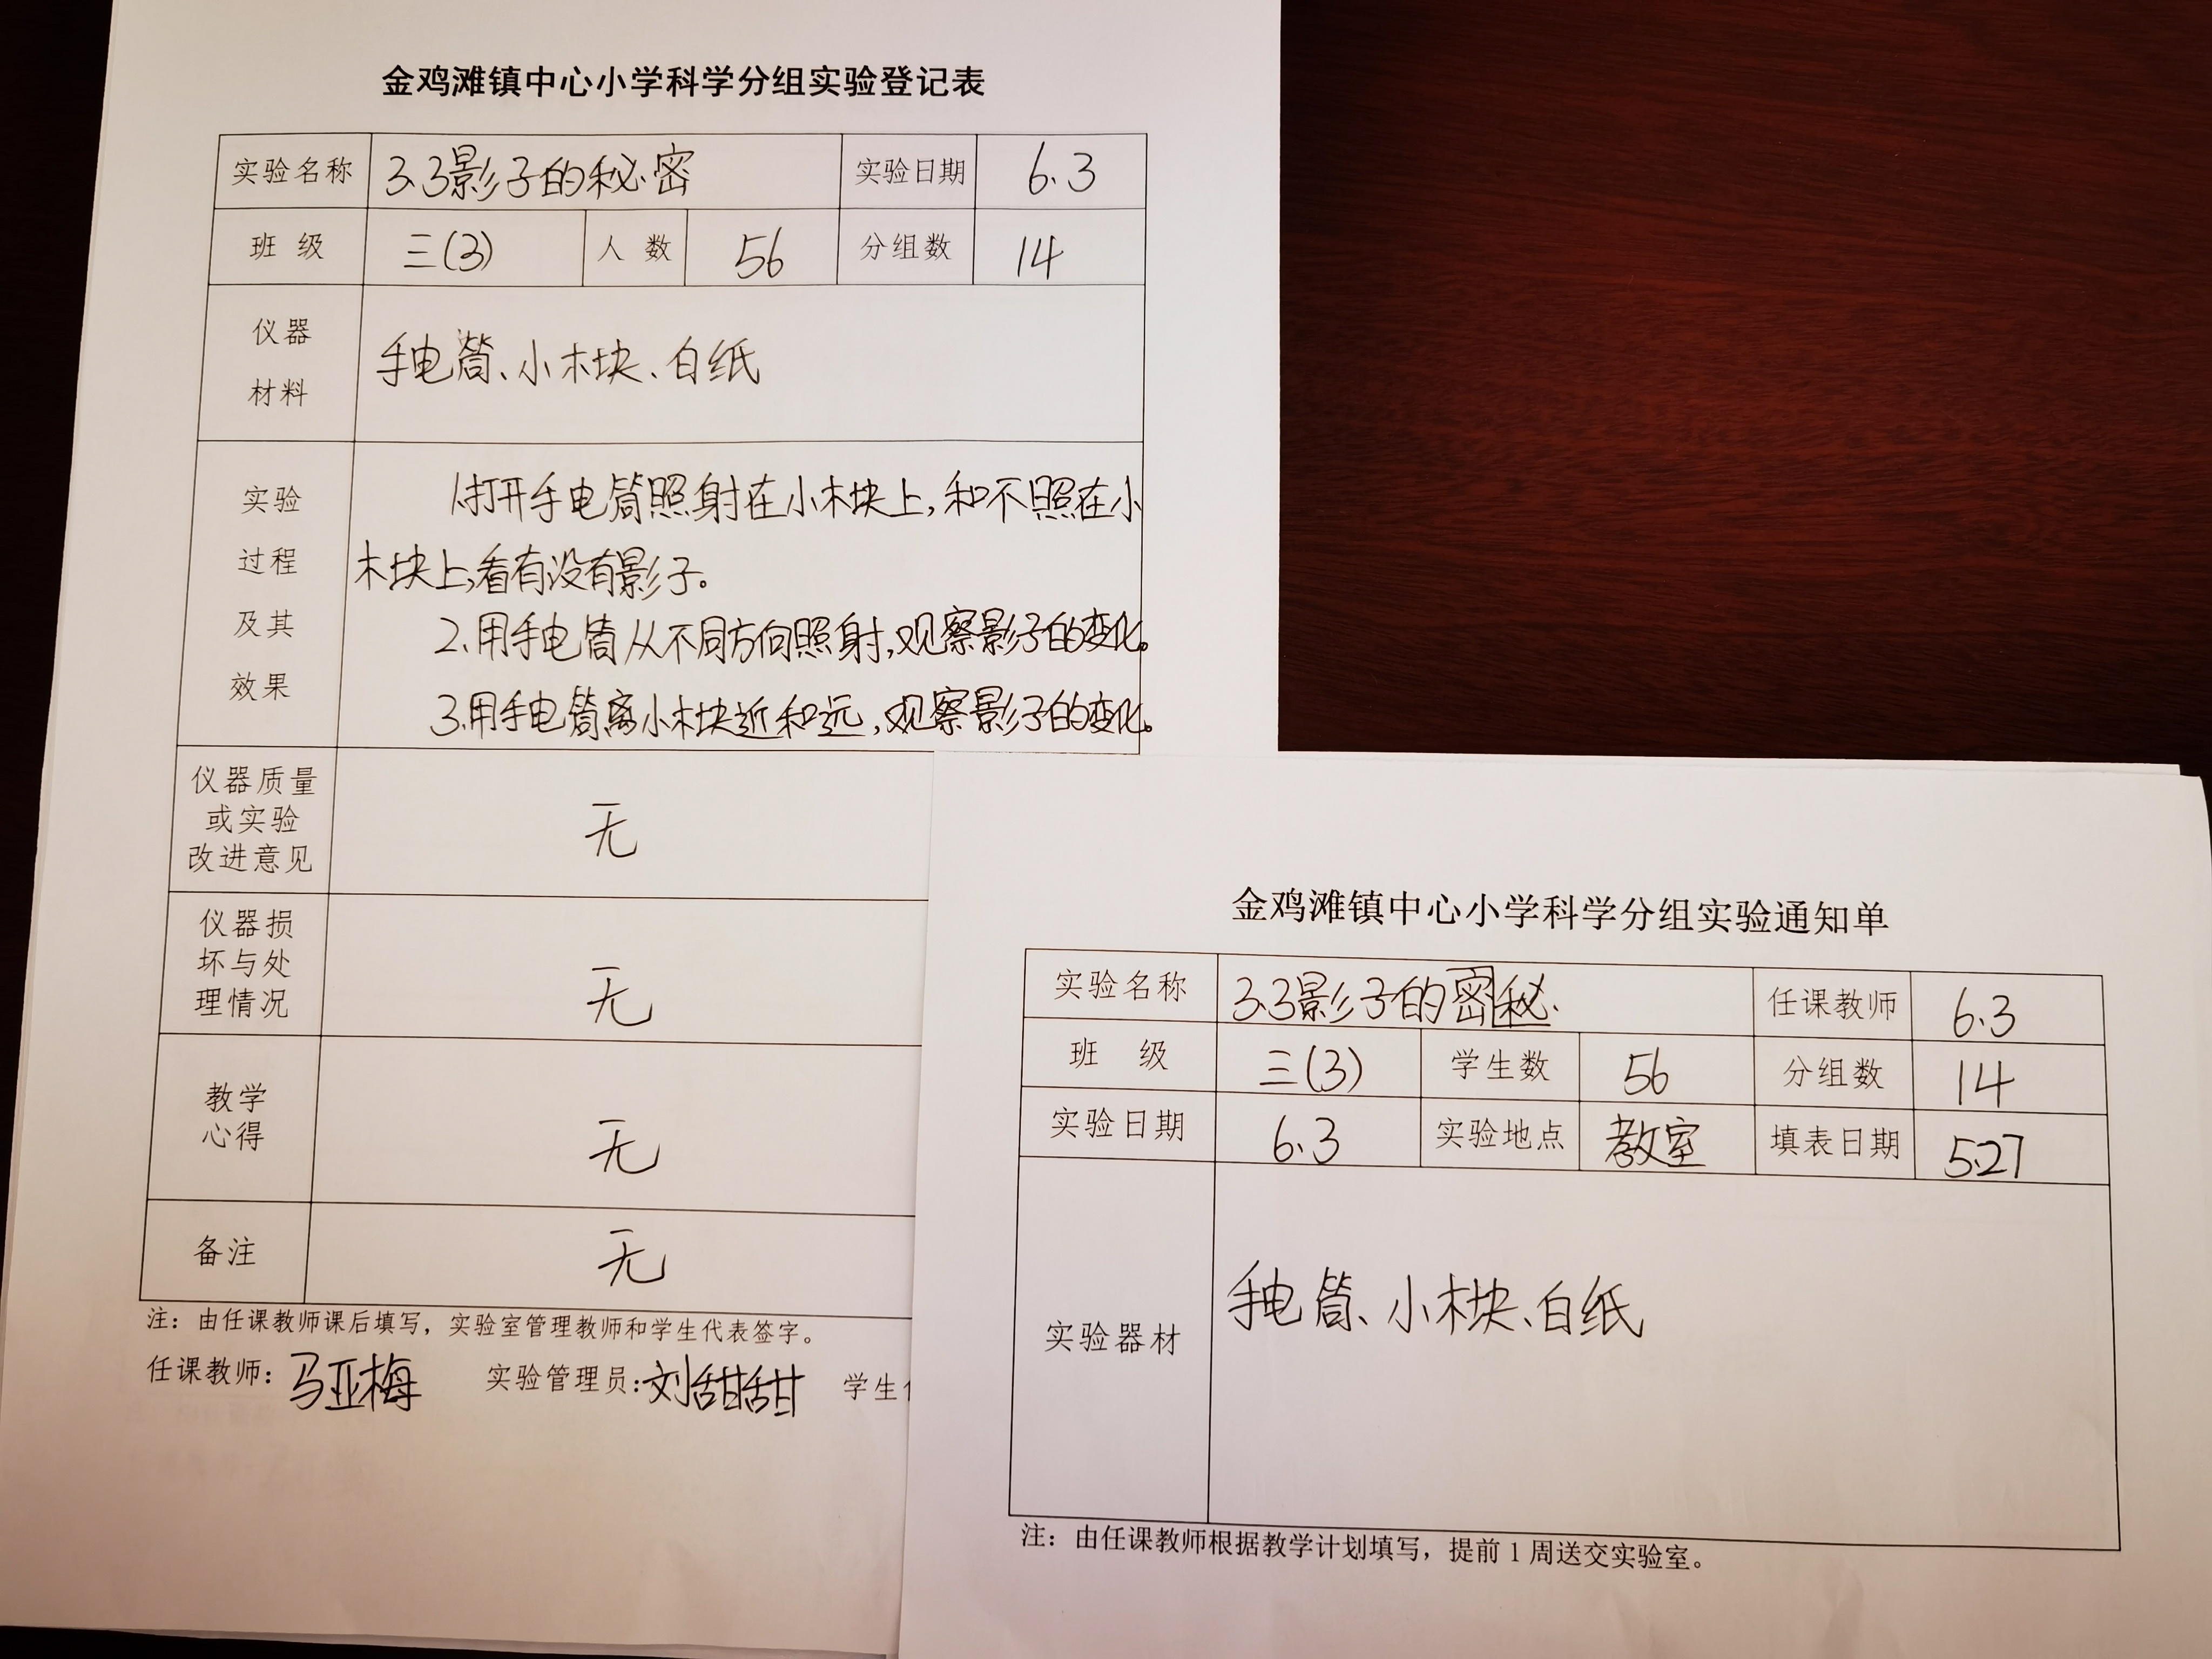 金鸡滩镇中心小学科学分组实验登记表
实验名称 3.3影子的秘密 实验日期 6.3
班 级 三(3) 人 数 56 分组数 14
仪器
材料
手电筒、小木块、白纸
实验
过程
及其
效果
1.打开手电筒照射在小木块上,和不照在小
木块上,看有没有影子。
2.用手电筒从不同方向照射,观察影子的变化。
3.用手电筒离小木块近和远,观察影子的变化。
仪器质量
或实验
改进意见
无
仪器损
坏与处
理情况
无
教学
心得
无
备注 无
注：由任课教师课后填写，实验室管理教师和学生代表签字。
任课教师：马亚梅 实验管理员：刘甜甜 学生
金鸡滩镇中心小学科学分组实验通知单
实验名称 3.3影子的密秘. 任课教师 6.3
班 级 三(3) 学生数 56 分组数 14
实验日期 6.3 实验地点 教室 填表日期 5.27
实验器材 手电筒、小木块、白纸
注：由任课教师根据教学计划填写，提前 1 周送交实验室。